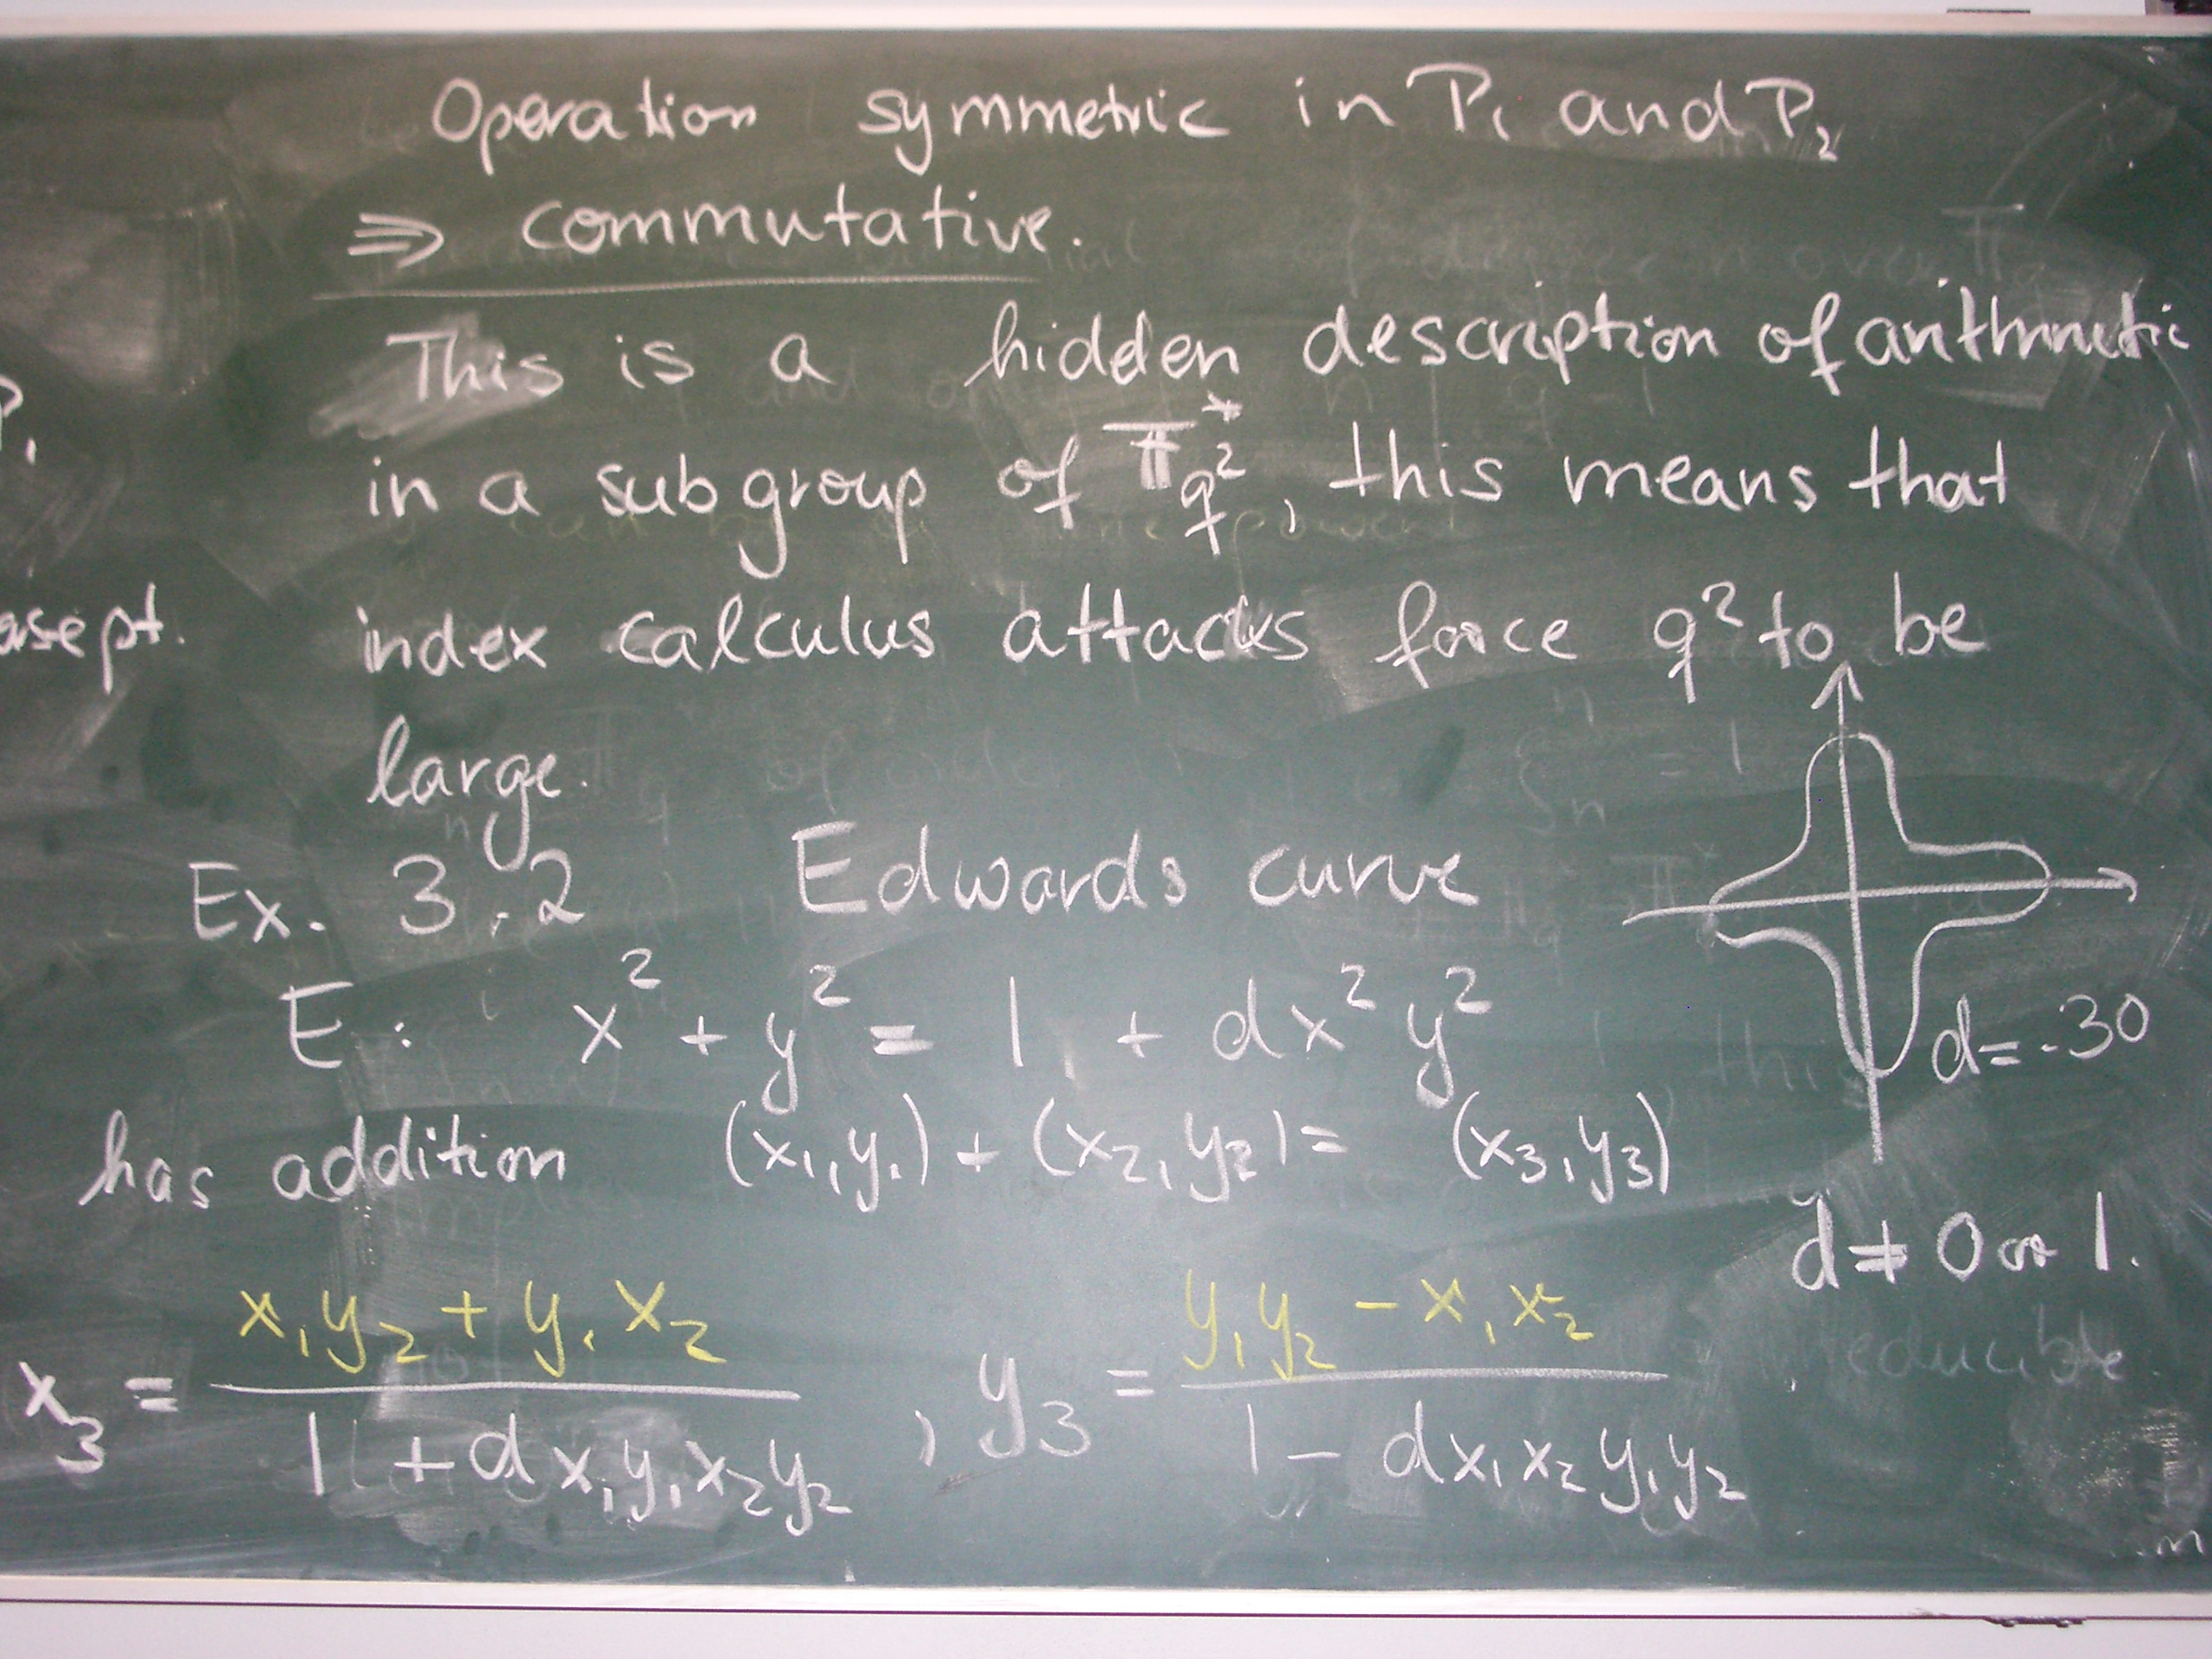 Operation symmetric in P₁ and P₂
⇒ commutative.
This is a hidden description of arithmetic
in a subgroup of 𝔽*_q², this means that
asept.
index calculus attacks force q² to be
large.
Ex. 3.2 Edwards curve
E: x² + y² = 1 + dx²y²
d = -30
has addition (x₁,y₁) + (x₂,y₂) = (x₃,y₃)
d ≠ 0 or 1.
x₃ = (x₁y₂ + y₁x₂) / (1 + dx₁y₁x₂y₂) , y₃ = (y₁y₂ - x₁x₂) / (1 - dx₁x₂y₁y₂)